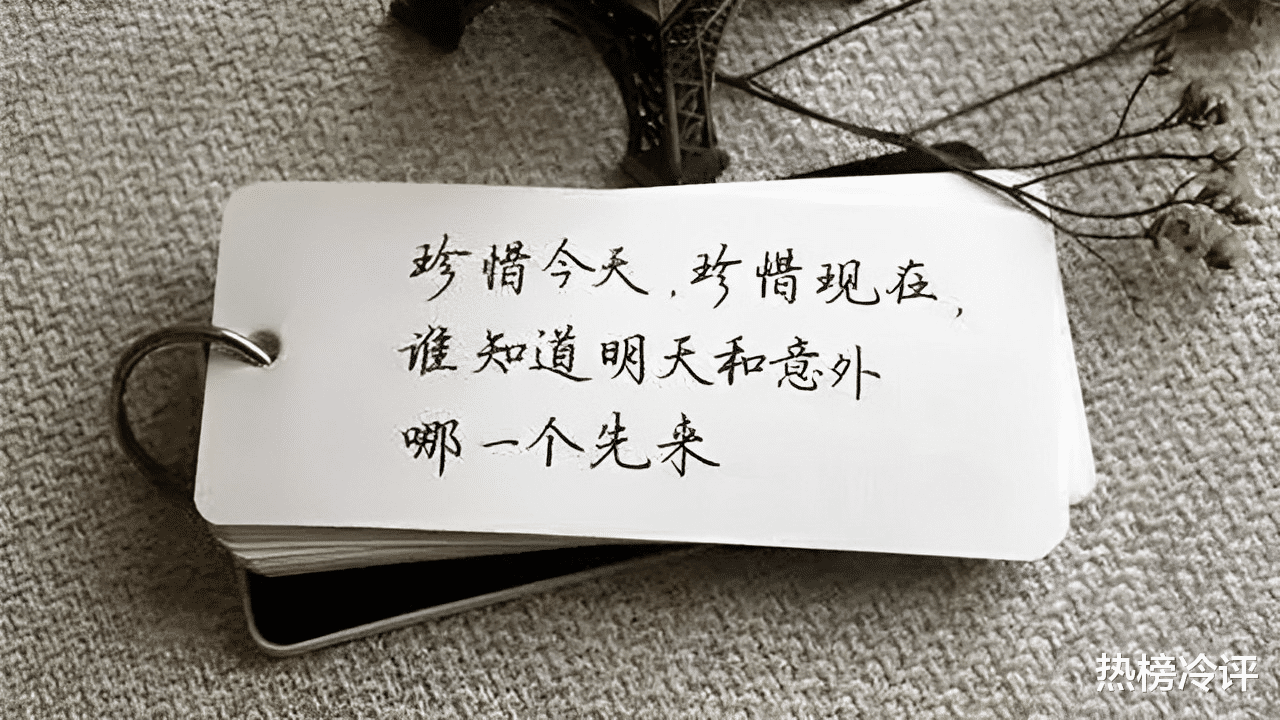 珍惜今天,珍惜现在,
谁知道明天和意外
哪一个先来
热榜冷评